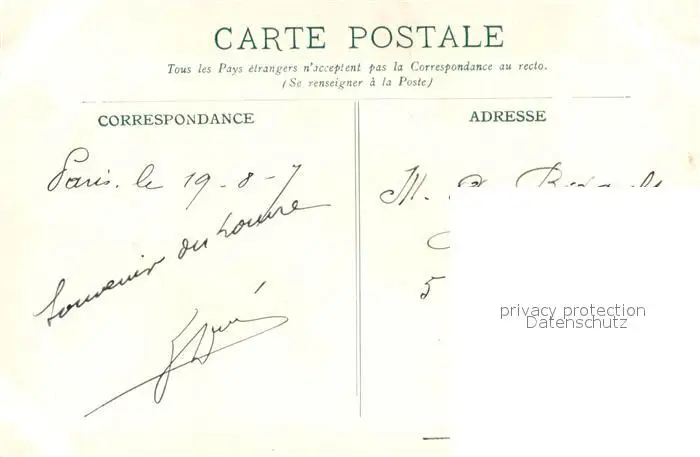 CARTE POSTALE
Tous les Pays étrangers n'acceptent pas la Correspondance au recto.
(Se renseigner à la Poste)
CORRESPONDANCE
ADRESSE
Paris, le 19-8-7
Souvenir du Louvre
M.
5
privacy protection
Datenschutz